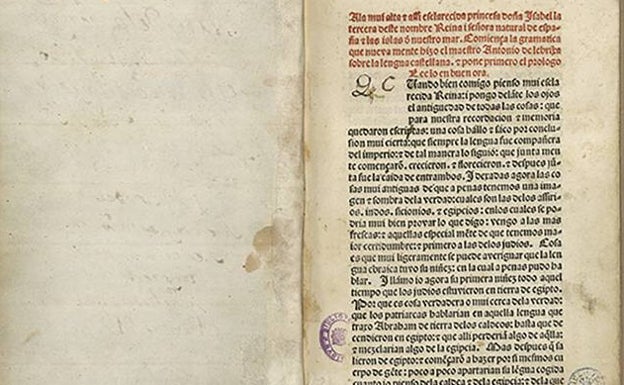 Ala mui alta ⁊ assi esclarecida princesa doña Isabel la
tercera deste nombre Reina i señora natural de espa-
ña ⁊ las islas ð nuestro mar. Comiença la gramatica
que nueva mente hizo el maestro Antonio de lebrixa
sobre la lengua castellana. ⁊ pone primero el prologo
Lee lo en buen ora.
C
Uando bien comigo pienso mui escla
recida Reina: i pongo delãte los ojos
el antiguedad de todas las cosas: que
para nuestra recordacion ⁊ memoria
quedaron escriptas: una cosa hállo ⁊ sáco por conclu-
sion mui cierta: que siempre la lengua fue compañera
del imperio: ⁊ de tal manera lo siguió: que junta men
te começarõ. crecieron. ⁊ florecieron. ⁊ despues jũ
ta fue la caida de entrambos. I dexadas agora las co
sas mui antiguas de que a penas tenemos una ima-
gen ⁊ sombra dela verdad: cuales son las delos assiri
os. indos. sicionios. ⁊ egipcios: enlos cuales se po-
dria mui bien provar lo que digo: vengo a las mas
frescas: ⁊ aquellas especial mẽte de que tenemos ma-
ior certidumbre: ⁊ primero a las delos judios. Cosa
es que mui ligeramente se puede averiguar que la len
gua ebraica tuvo su niñez: en la cual a penas pudo ha
blar. I llámo io agora su primera niñez todo aquel
tiempo que los judios estuvieron en tierra de egipto.
Por que es cosa verdadera o mui cerca dela verdad:
que los patriarcas hablarian en aquella lengua que
traxo Abraham de tierra delos caldeos: hasta que de
cendieron en egipto: ⁊ que alli perderiã algo de aq̃lla:
⁊ mezclarian algo dela egipcia. Mas despues q̃ sa
lieron de egipto: ⁊ comẽçarõ a hazer por si mesmos cu
erpo de gẽte: poco a poco apartarian su lẽgua cogida
cuanto io pienso dela caldea ⁊ dela egipcia: ⁊ dela que